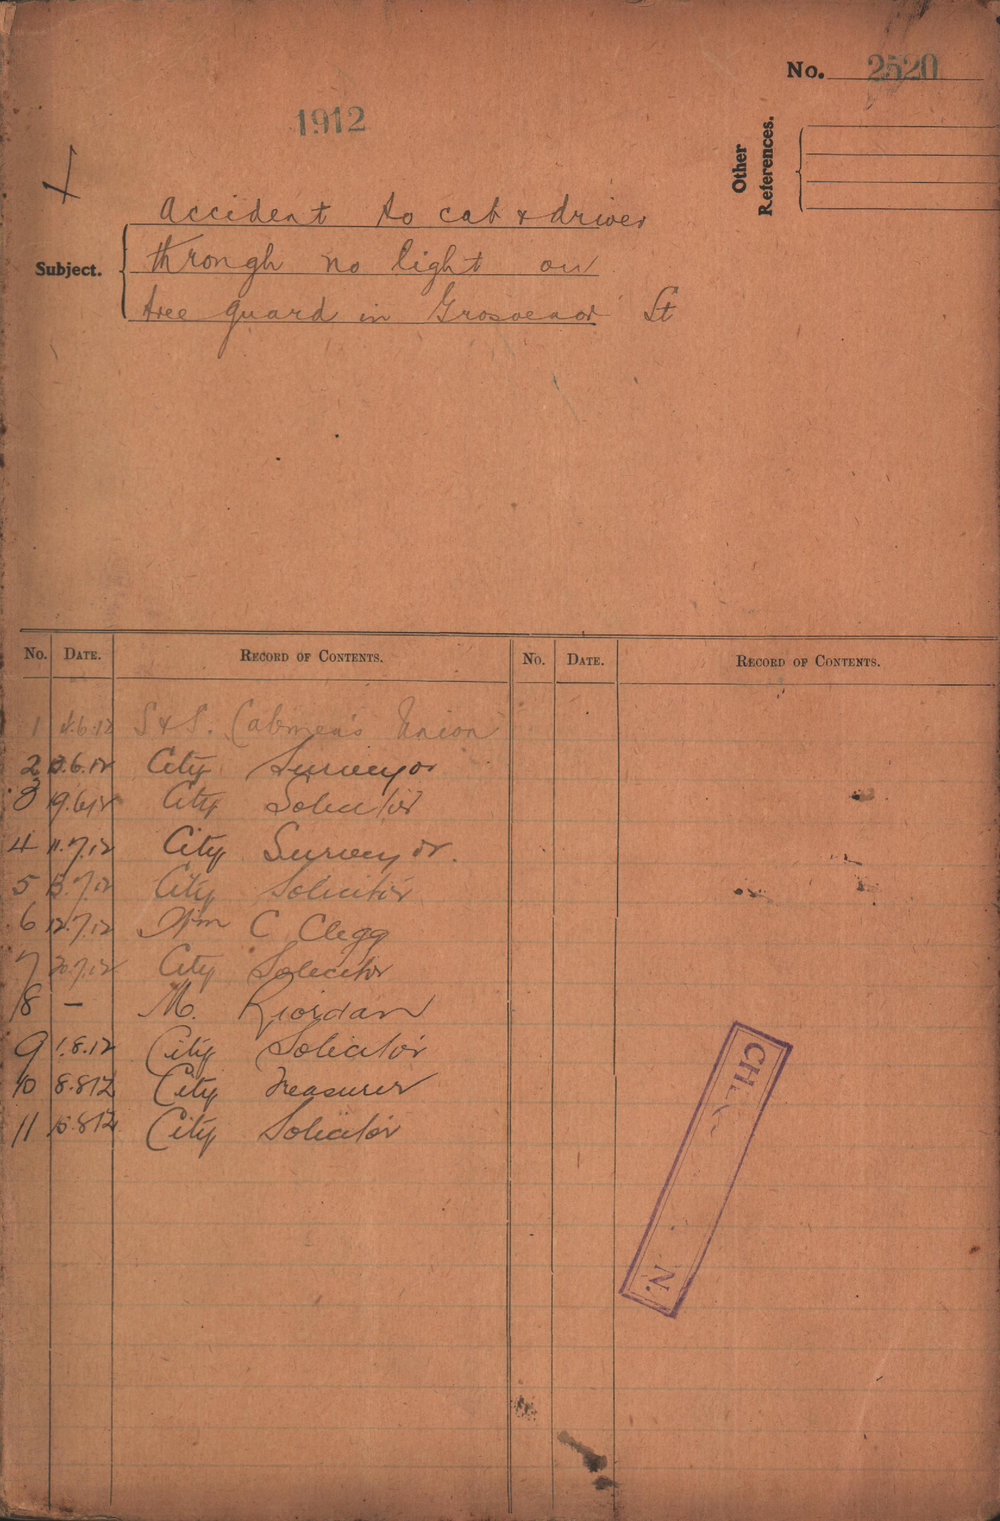 No. 2520
1912
Other
References.
Subject.
Accident to cab & driver
through no light on
tree guard in Grosvenor St
No. DATE. RECORD OF CONTENTS. No. DATE. RECORD OF CONTENTS.
1 4.6.12 S & S. Cabmen's Union
2 .6.12 City Surveyor
3 19.6.12 City Solicitor
4 11.7.12 City Surveyor.
5 .7.12 City Solicitor
6 12.7.12 Wm C Clegg
7 20.7.12 City Solicitor
8 — M. Riordan
9 1.8.12 City Solicitor
10 8.8.12 City Treasurer
11 15.8.12 City Solicitor
CH
N.